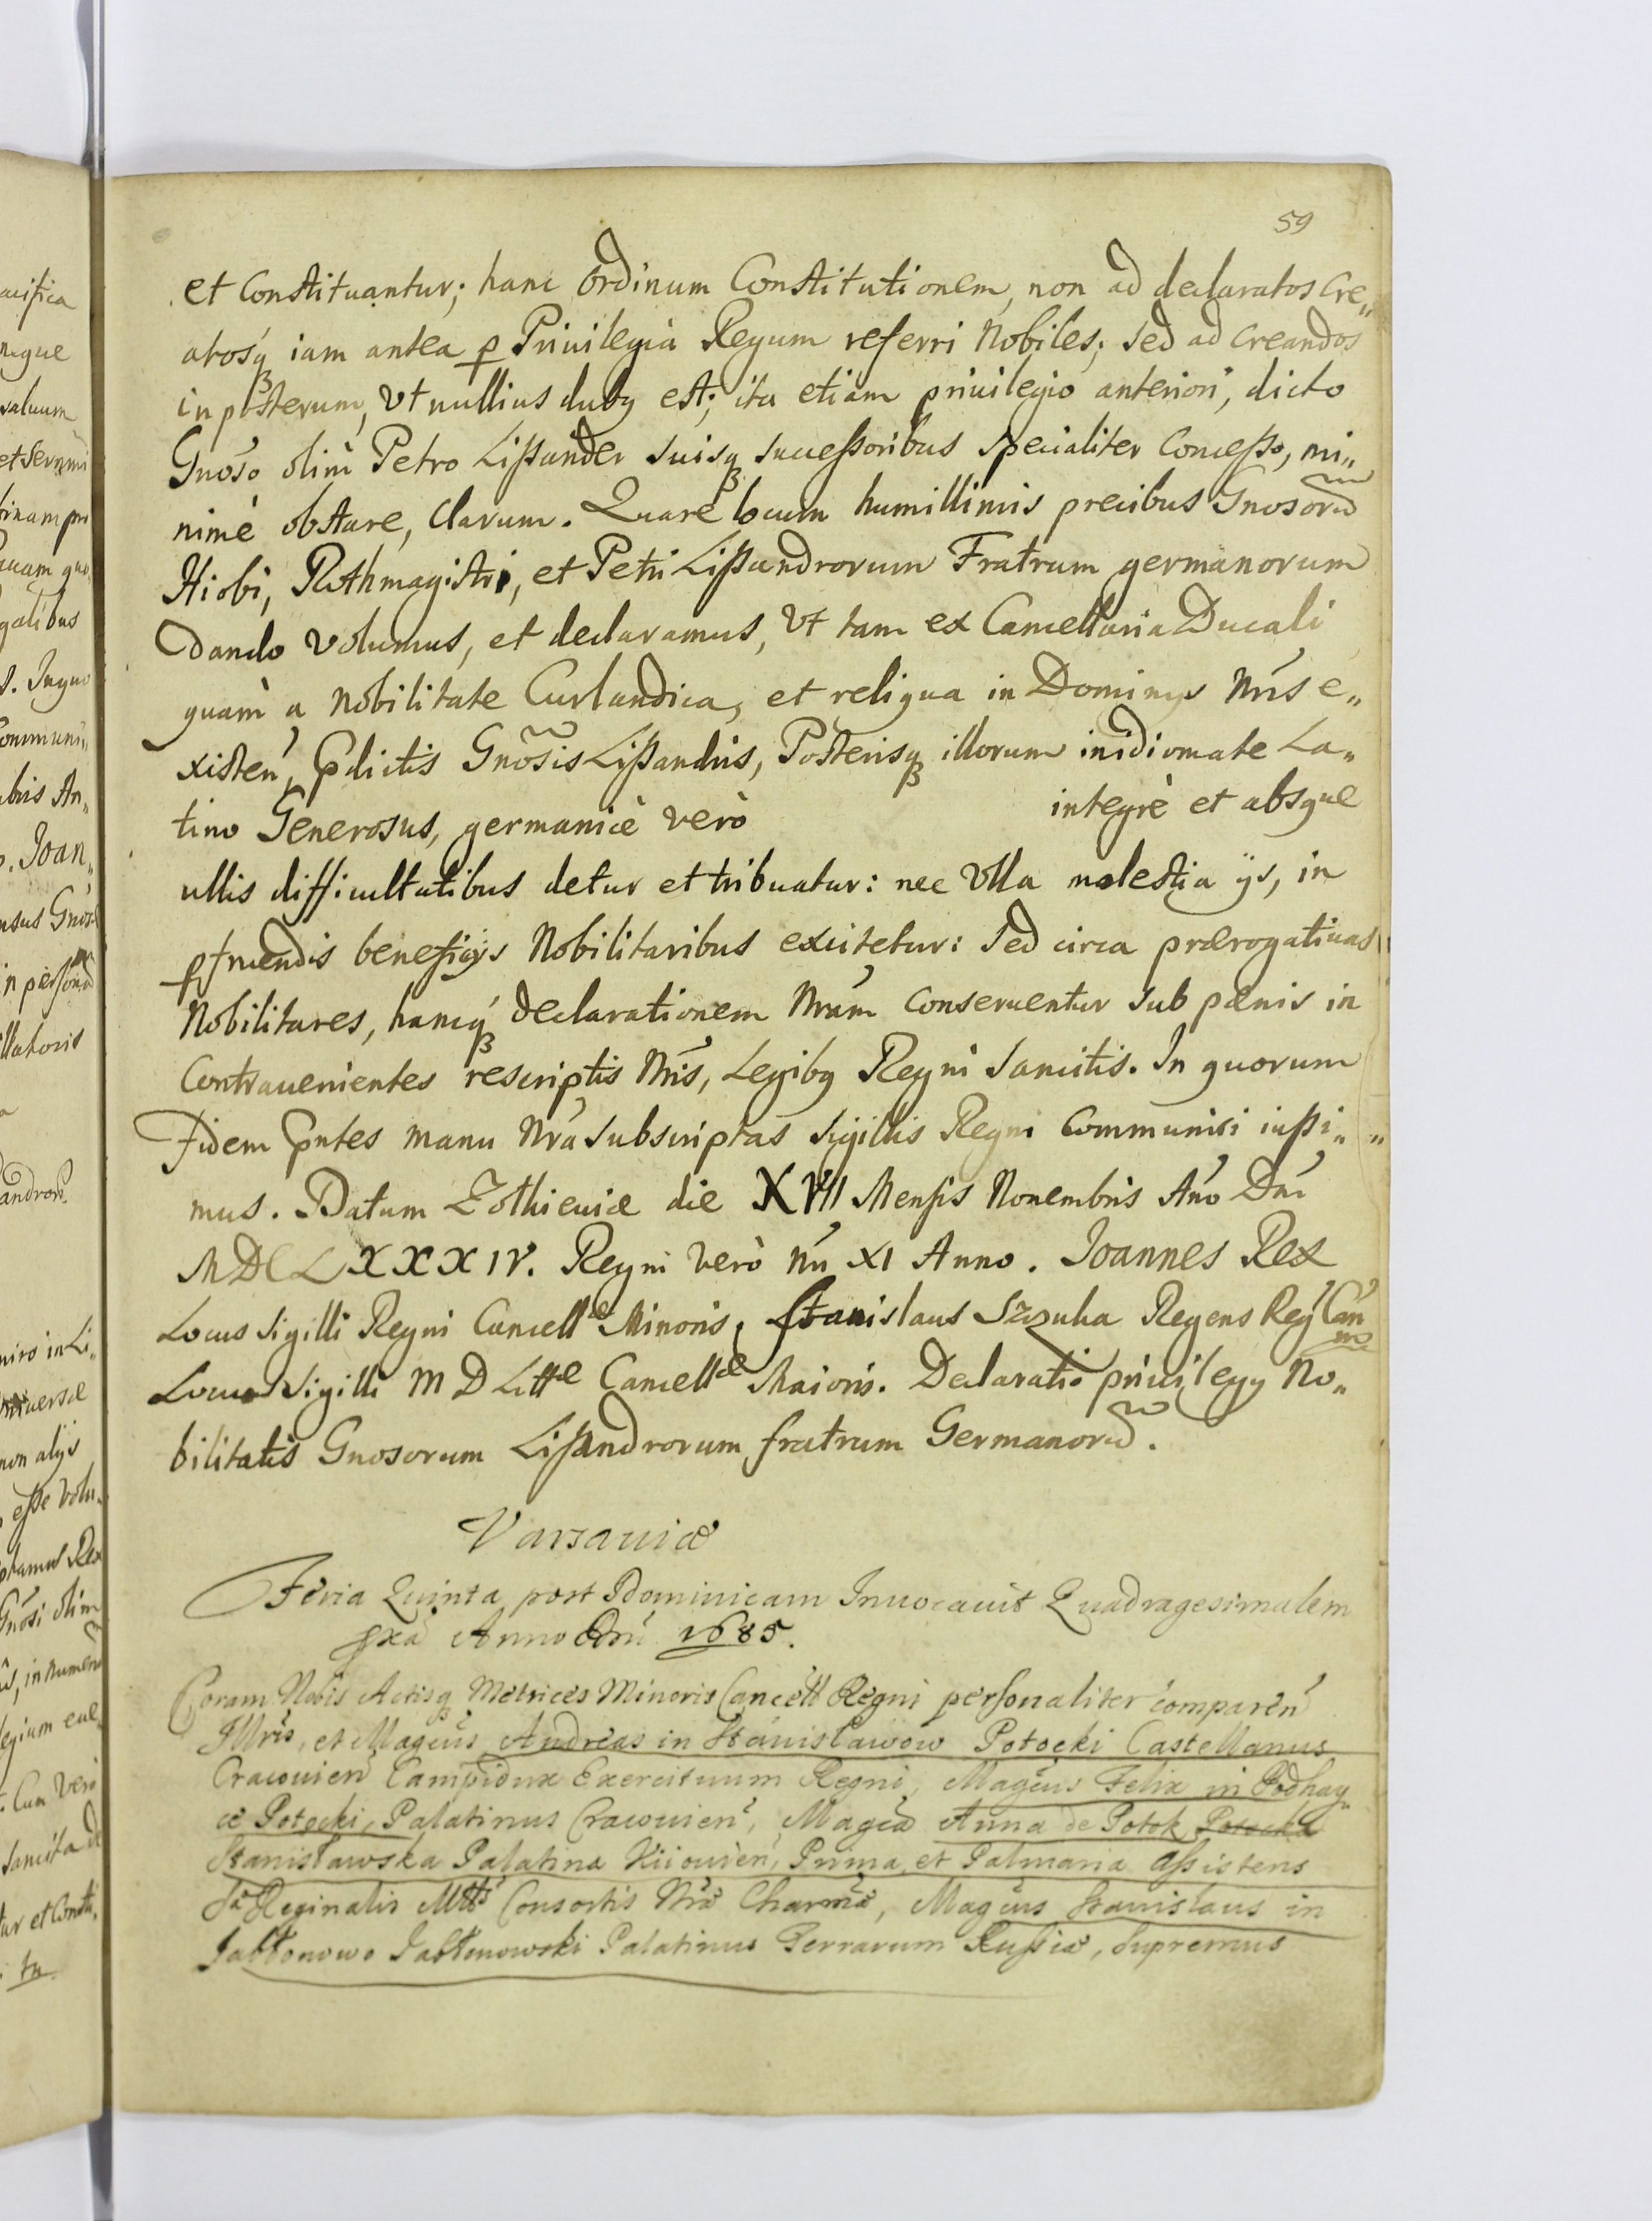 59
et Constituantur; hanc Ordinum Constitutionem, non ad declaratos Cre„
atosq́ iam antea p Priuilegia Regum referri Nobiles; sed ad Creandos
in posterum, vt nullius dubÿ est; ita etiam priuilegio anteriori, dicto
Gnoso olim Petro Lißander suisq̨ sucessoribus specialiter Concesso, mi„
nimè obstare, Clarum. Quare locum humillimis precibus Gnosorũ
Hiobi, Rothmagistri, et Petri Lißandrorum Fratrum germanorum
dando Volumus, et declaramus, Vt tam ex Cancellaria Ducali
quàm a Nobilitate Curlandica, et reliqua in Dominijs Nris e„
xisteń, Pdictis Gnosis Lißandris, Posterisq̨ illorum in idiomate La„
tino Generosus, germanicè verò integrè et absque
ullis difficultatibus detur et tribuatur: nec Vlla molestia ijs, in
pfruendis beneficijs Nobilitaribus excitetur: Sed circa prærogatiuas
Nobilitares, hancq́ declarationem Nram Conseruentur sub pænis in
Contrauenientes rescriptis Nris, Legibq Regni Sancitis. In quorum
Fidem Pntes manu Nra Subscriptas Sigillis Regni Communiri iußi„
mus. Datum Zolkieuiæ die XVII Mensis Nouembris Ańo Dńi
MDCLXXXIV. Regni verò Nri XI Anno. Joannes Rex
Locus Sigilli Regni Cancellæ Minoris, Stanislaus Szczuka Regens Reg Can
Locus Sigilli M D Littæ Cancellæ Maioris. Declaratio priuilegÿ No„
bilitatis Gnosorum Lißandrorum fratrum Germanorũ.
Varsauiæ
Feria Quinta post Dominicam Inuocauit Quadragesimalem
pxa Anno Dni 1685.
Coram Nobis Actisq̨ Metrices Minoris Cancell Regni personaliter comparen
Illris, et Magcus Andreas in Stanisławow Potocki Castellanus
Cracouien Campidux Exercituum Regni, Magcus Felix in Podhay„
ce Potocki, Palatinus Cracouien, Magca Anna de Potok Potocka
Stanisławska Palatina Kiiouien, Prima et Palmaria Assistens
Sæ Reginalis Mttis Consortis Nræ Charmæ, Magcus Stanislaus in
Jabłonowo Jabłonowski Palatinus Terrarum Russiæ, Supremus